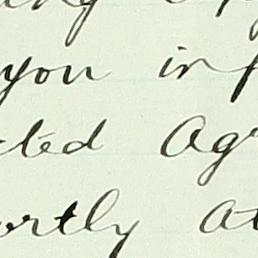 you in
cted Ag
rtly at